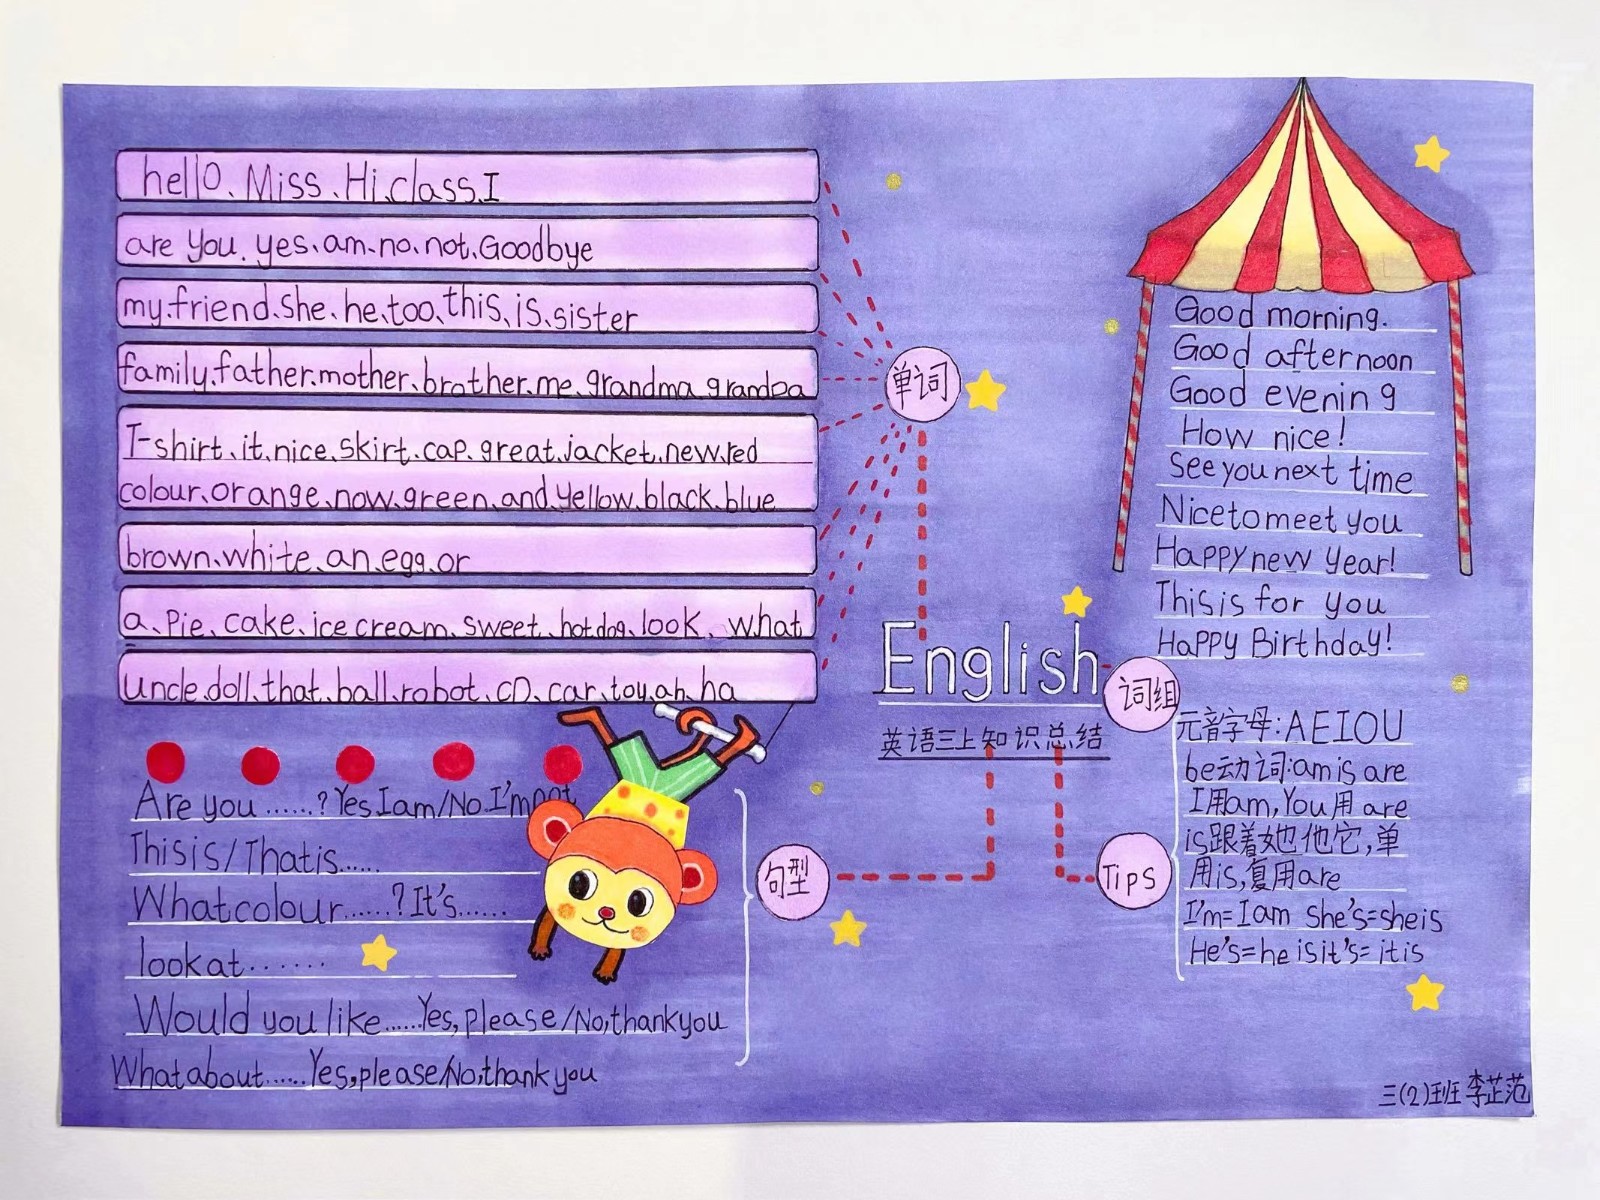 hello、Miss、Hi、class、I
are you、yes、am、no、not、Goodbye
my、friend、she、he、too、this、is、sister
family、father、mother、brother、me、grandma、grandpa
T-shirt、it、nice、skirt、cap、great、jacket、new、red
colour、orange、now、green、and、yellow、black、blue
brown、white、an、egg、or
a、pie、cake、ice cream、sweet、hot dog、look、what
uncle、doll、that、ball、robot、CD、car、toy、ah、ha
单词
Good morning.
Good afternoon
Good evening
How nice!
See you next time
Nice to meet you
Happy new year!
This is for you
Happy Birthday!
English
英语三上知识总结
词组
元音字母:AEIOU
be动词:am is are
I用am,You用are
is跟着她他它,单
用is,复用are
I'm=I am She's=she is
He's=he is it's=it is
Tips
句型
Are you ......? Yes I am/No I'm not
This is/That is.....
What colour......? It's......
look at......
Would you like......Yes,please/No,thank you
What about......Yes,please/No,thank you
三(2)班 李芷范